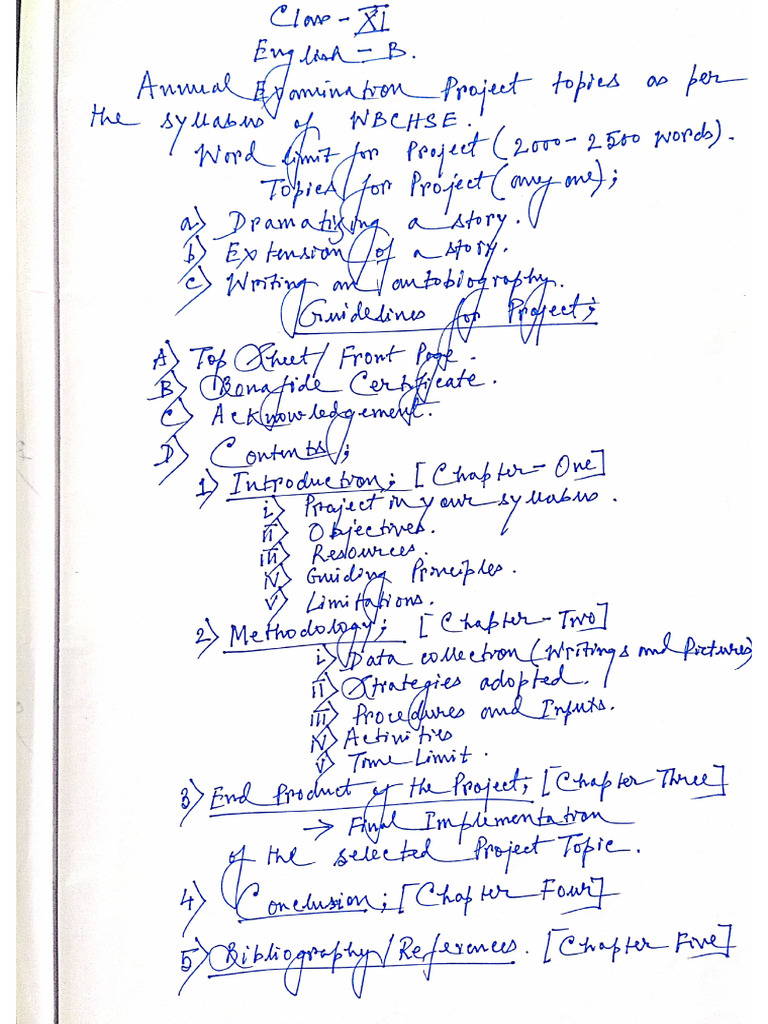 Class - XI
English - B.
Annual Examination Project topics as per
the syllabus of WBCHSE.
Word limit for Project (2000 - 2500 words).
Topics for Project (any one);
a) Dramatising a story.
b) Extension of a story.
c) Writing an autobiography.
Guidelines for Project;
A) Top Sheet / Front Page.
B) Bonafide Certificate.
C) Acknowledgement.
D) Contents;
1) Introduction; [Chapter - One]
i) Project in your syllabus.
ii) Objectives.
iii) Resources.
iv) Guiding Principles.
v) Limitations.
2) Methodology; [Chapter - Two]
i) Data collection (Writings and Pictures)
ii) Strategies adopted.
iii) Procedures and Inputs.
iv) Activities
v) Time Limit.
3) End Product of the Project; [Chapter Three]
→ Final Implementation
of the selected Project Topic.
4) Conclusion; [Chapter Four]
5) Bibliography / References. [Chapter Five]